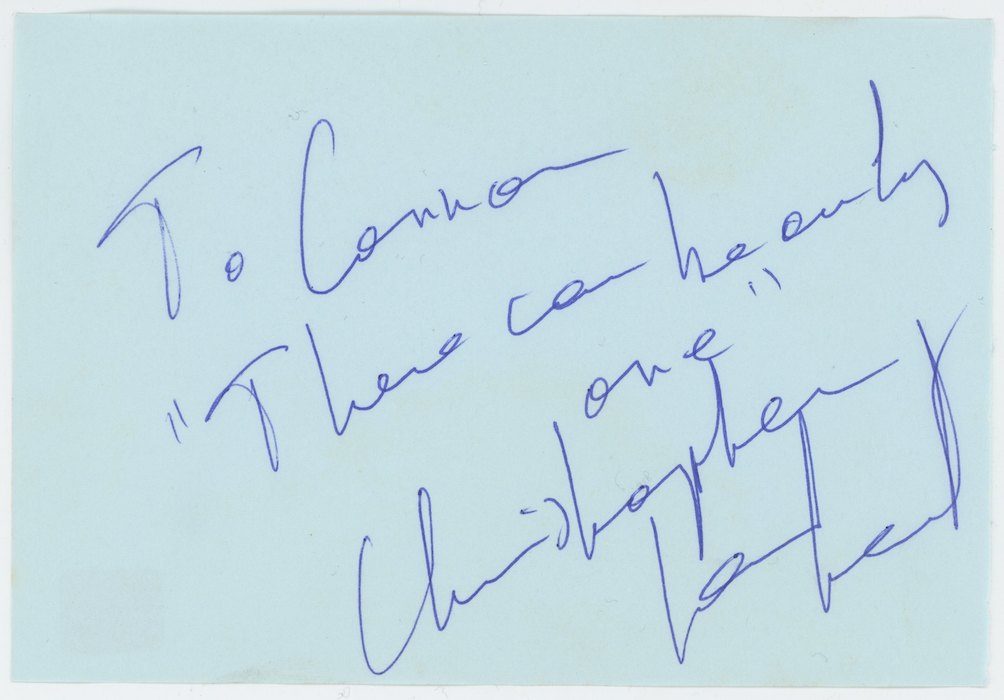 To Connor
"There can be only
one"
Christopher
Lambert